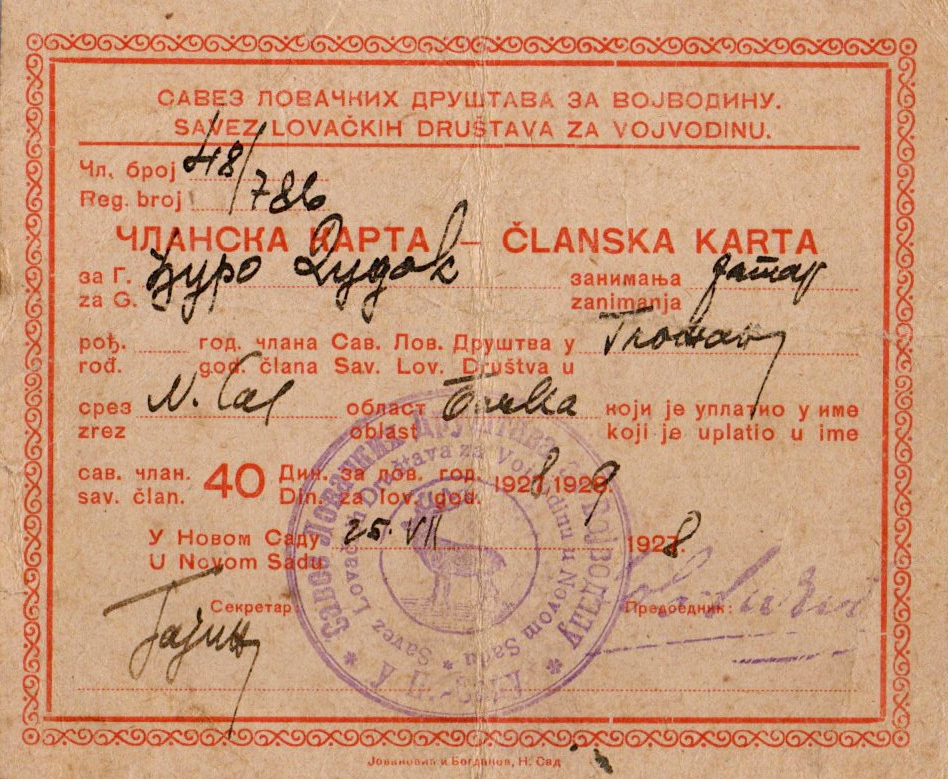 САВЕЗ ЛОВАЧКИХ ДРУШТАВА ЗА ВОЈВОДИНУ.
SAVEZ LOVAČKIH DRUŠTAVA ZA VOJVODINU.
Чл. број 48/786
Reg. broj
ЧЛАНСКА КАРТА – ČLANSKA KARTA
за Г. Ђуро Дудок занимања ратар
za G. zanimanja
рођ. год. члана Сав. Лов. Друштва у
rođ. god. člana Sav. Lov. Društva u
срез N. Сад област Бачка који је уплатио у име
zrez oblast koji je uplatio u ime
сав. члан. 40 Дин. за лов. год. 1928 1929.
sav. član. Din. za lov. god.
У Новом Саду 25. VII 1928.
U Novom Sadu
Секретар: Председник:
Савез Ловачких Друштава за Војводину
Savez Lovačkih Društava za Vojvodinu u Novom Sadu
Јовановић и Богданов, Н. Сад